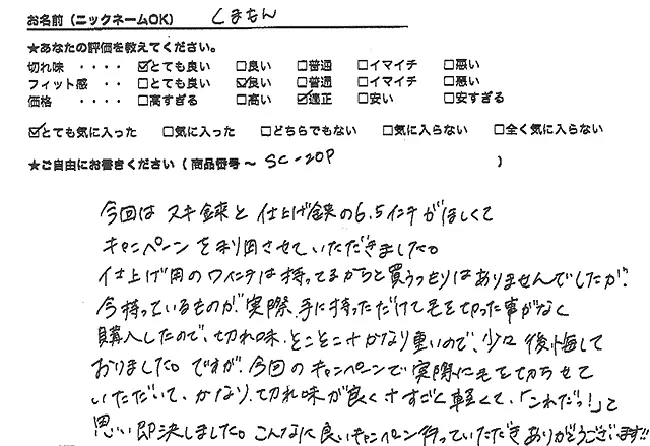 お名前（ニックネームOK） くまもん
★あなたの評価を教えてください。
切れ味 ・・・・ ☑とても良い □良い □普通 □イマイチ □悪い
フィット感 ・・ □とても良い ☑良い □普通 □イマイチ □悪い
価格 ・・・・ □高すぎる □高い ☑適正 □安い □安すぎる
☑とても気に入った □気に入った □どちらでもない □気に入らない □全く気に入らない
★ご自由にお書きください（商品番号～ SC-20P ）
今回は スキ鋏と仕上げ鋏の6.5インチがほしくて
キャンペーンを利用させていただきました。
仕上げ用の7インチは持ってるからと買うつもりはありませんでしたが、
今持っているものが、実際、手に持っただけで毛を切った事がなく
購入したので、切れ味、そこそこ＋かなり重いので、少々後悔して
おりました。ですが、今回のキャンペーンで実際に毛を切らせて
いただいて、かなり、切れ味が良く＋すごく軽くて、「これだっ!」と
思い即決しました。こんなに良いキャンペーン行っていただきありがとうございます!!